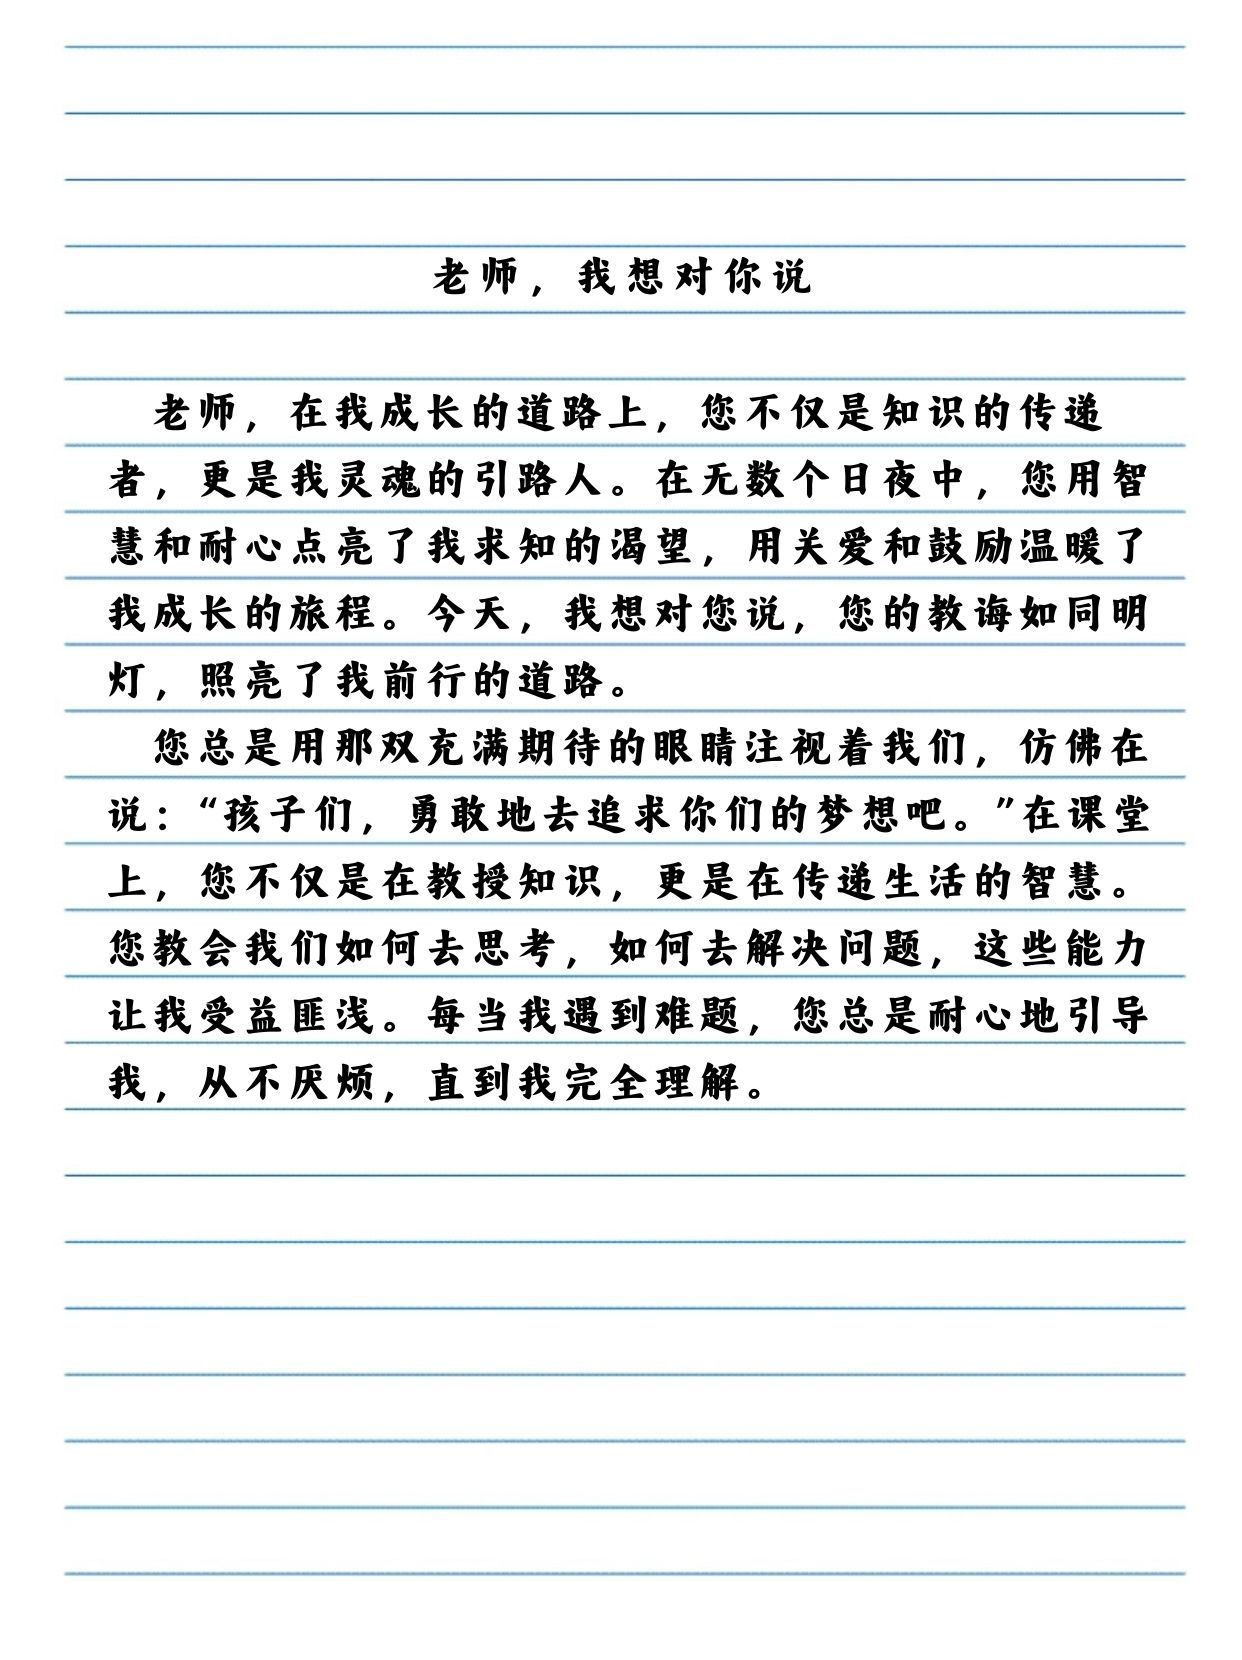 老师，我想对你说
老师，在我成长的道路上，您不仅是知识的传递
者，更是我灵魂的引路人。在无数个日夜中，您用智
慧和耐心点亮了我求知的渴望，用关爱和鼓励温暖了
我成长的旅程。今天，我想对您说，您的教诲如同明
灯，照亮了我前行的道路。
您总是用那双充满期待的眼睛注视着我们，仿佛在
说：“孩子们，勇敢地去追求你们的梦想吧。”在课堂
上，您不仅是在教授知识，更是在传递生活的智慧。
您教会我们如何去思考，如何去解决问题，这些能力
让我受益匪浅。每当我遇到难题，您总是耐心地引导
我，从不厌烦，直到我完全理解。